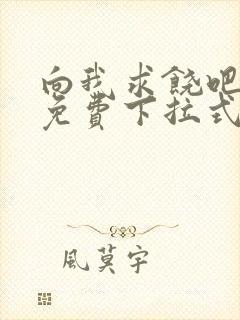 向我求饶吧
免費下拉式
風莫宇